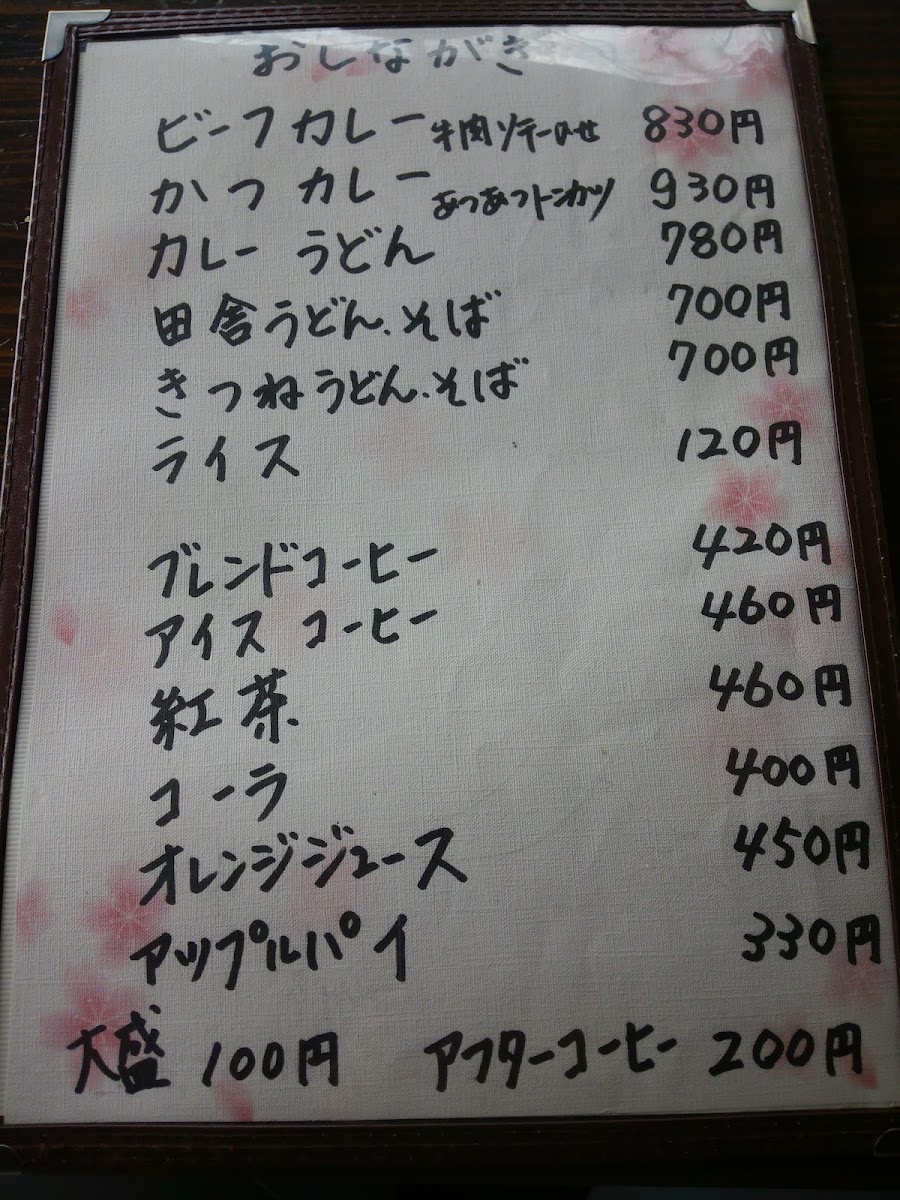 おしながき
ビーフカレー 牛肉ソテーのせ 830円
かつカレー あつあつトンカツ 930円
カレーうどん 780円
田舎うどん.そば 700円
きつねうどん.そば 700円
ライス 120円
ブレンドコーヒー 420円
アイスコーヒー 460円
紅茶 460円
コーラ 400円
オレンジジュース 450円
アップルパイ 330円
大盛 100円 アフターコーヒー 200円